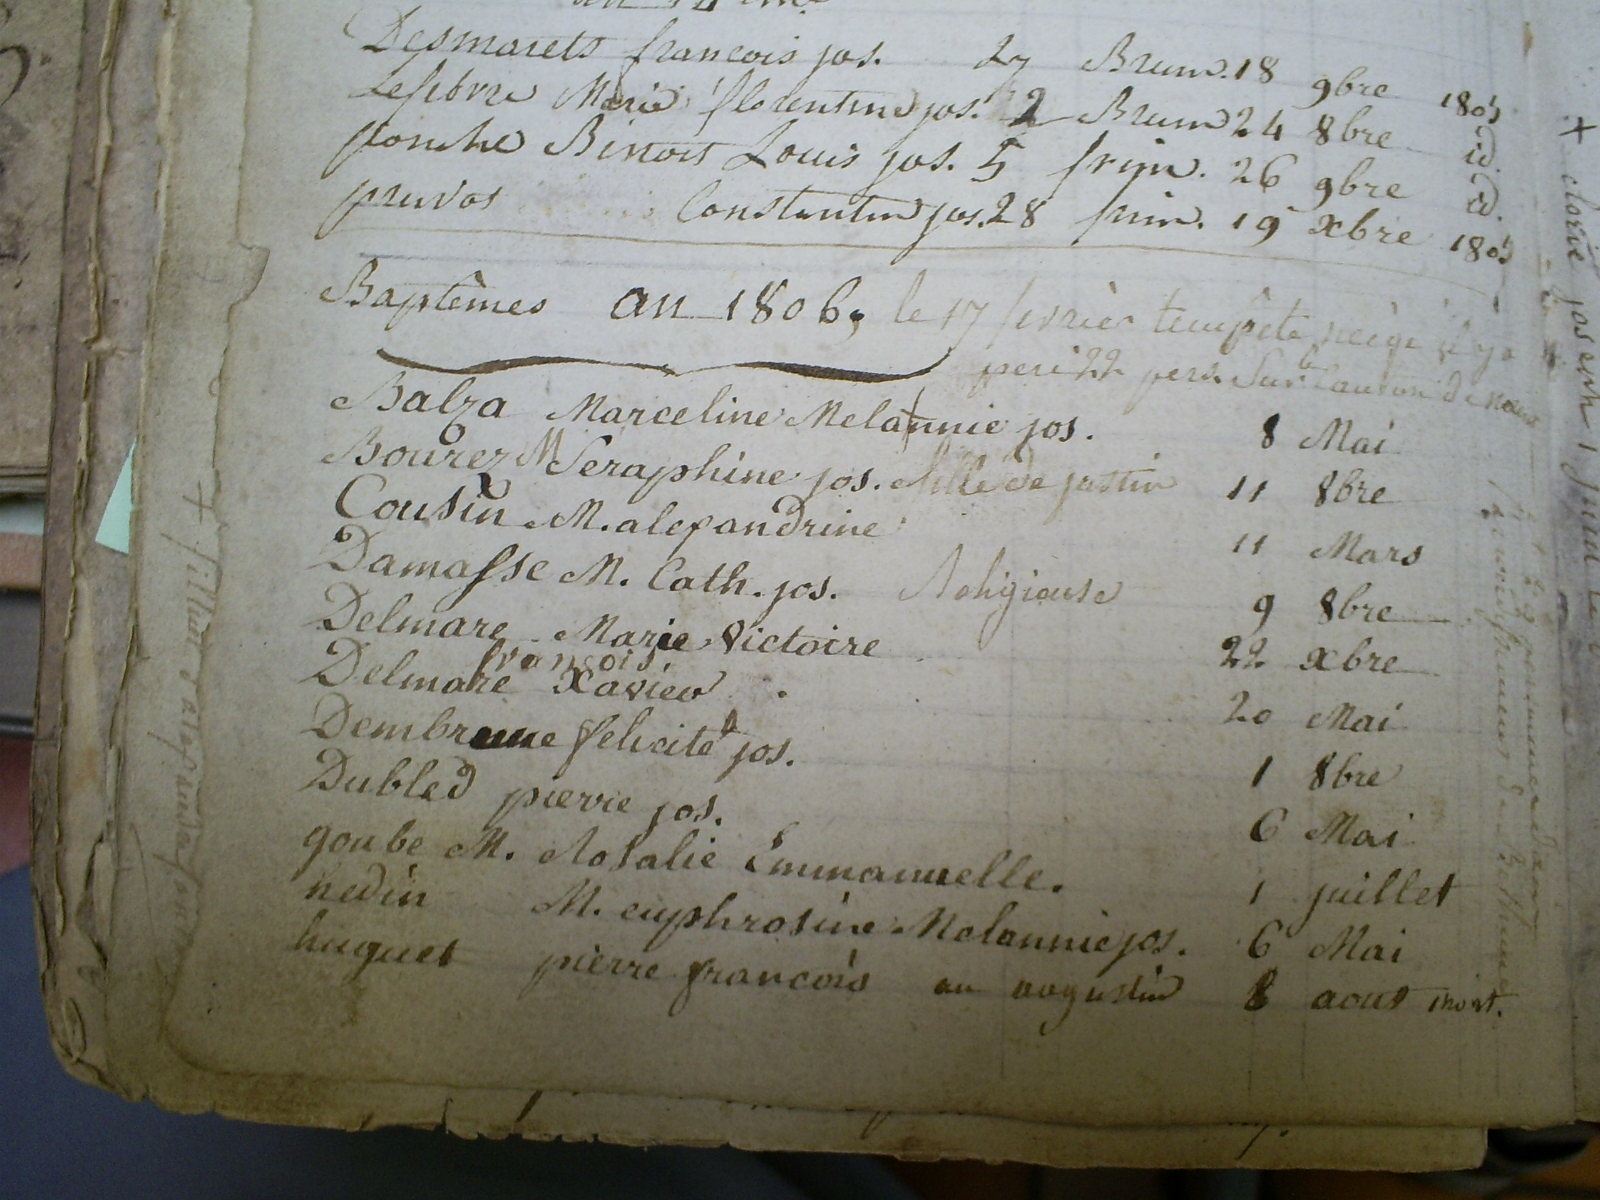 Desmarets francois jos. 27 Brum. 18 9bre 1805
Lefebvre Marie florentine jos. 2 Brum 24 8bre id.
plonche Binoit Louis jos. 5 frim. 26 9bre id.
pruvos Constantin jos. 28 frim. 19 xbre 1805
Baptêmes an 1806, le 17 fevrier tempête neige il y a
peri 22 pers. Sur le Canton de
Balza Marceline Melannie jos. 8 Mai
Bourez M Seraphine jos. fille de justin 11 8bre
Cousin M. alexandrine 11 Mars
Damasse M. Cath. jos. Religieuse 9 8bre
Delmare Marie Victoire 22 xbre
francois
Delmare Xavier 20 Mai
Dembrune felicité jos. 1 8bre
Dubled pierre jos. 6 Mai
goube M. Rosalie Emmanuelle. 1 juillet
hedin M. euphrosine Melannie jos. 6 Mai
huguet pierre francois ou augustin 8 aout mort.